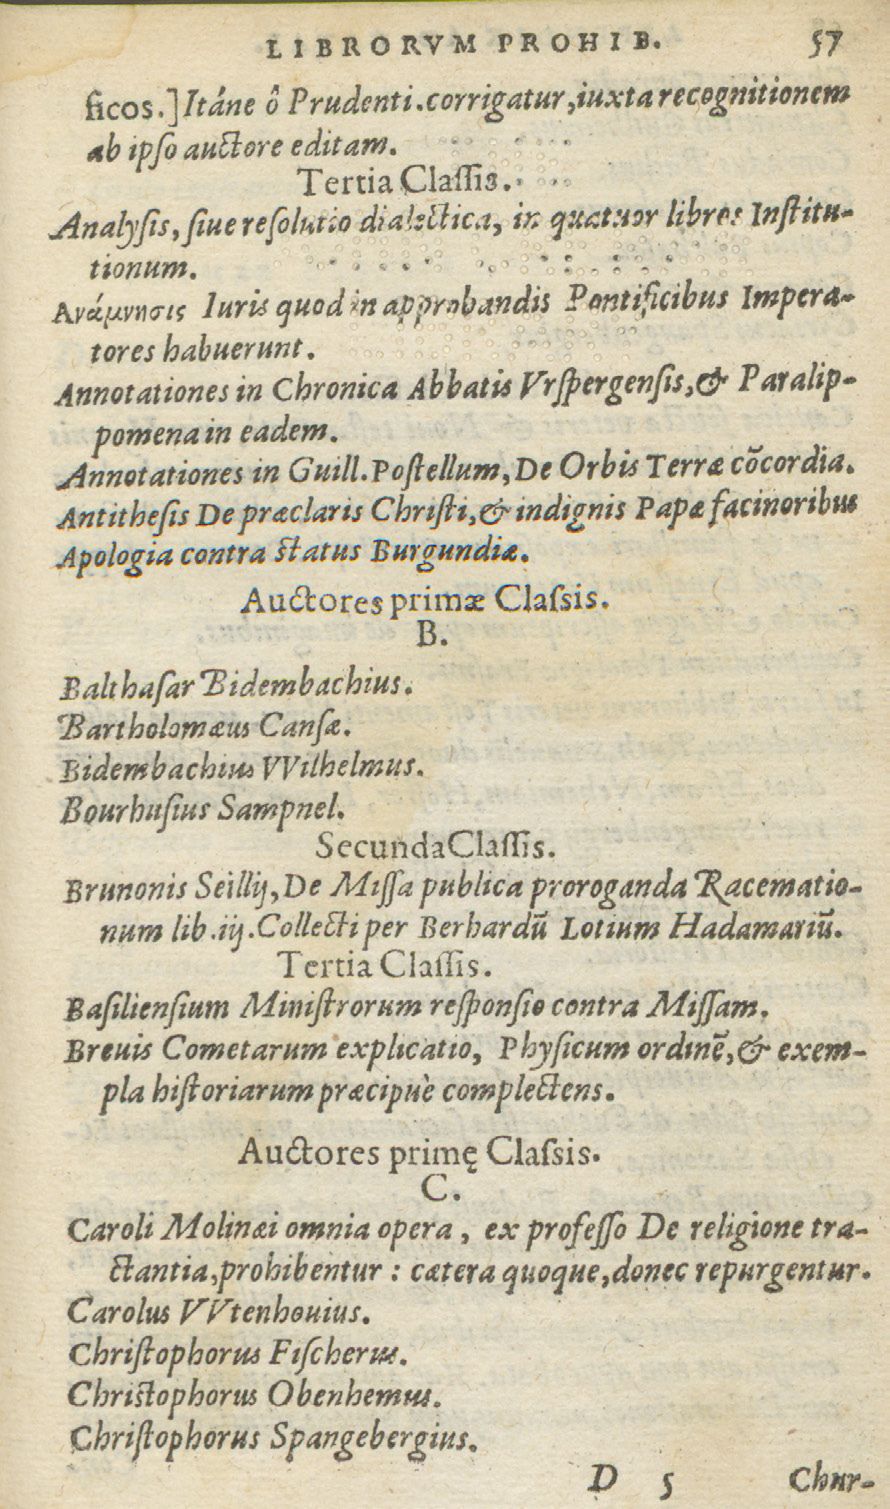 LIBRORVM PROHIB. 57
ficos.] Itáne ô Prudenti. corrigatur, iuxta recognitionem
ab ipſo auctore editam.
Tertia Claſſis.
Analyſis, ſiue reſolutio dialectica, in quatuor libros Inſtitu-
tionum.
Ανάμνησις Iuris quod in approbandis Pontificibus Impera-
tores habuerunt.
Annotationes in Chronica Abbatis Vrſpergenſis, & Paralip-
pomena in eadem.
Annotationes in Guill. Poſtellum, De Orbis Terræ cōcordia.
Antitheſis De præclaris Chriſti, & indignis Papæ facinoribus
Apologia contra ſtatus Burgundiæ.
Auctores primæ Claſsis.
B.
Balthaſar Bidembachius.
Bartholomæus Canſæ.
Bidembachius VVilhelmus.
Bourhuſius Sampnel.
Secunda Claſſis.
Brunonis Seillij, De Miſſa publica proroganda Racematio-
num lib. iij. Collecti per Berhardū Lotium Hadamariū.
Tertia Claſſis.
Baſilienſium Miniſtrorum reſponſio contra Miſſam.
Breuis Cometarum explicatio, Phyſicum ordinē, & exem-
pla hiſtoriarum præcipuè complectens.
Auctores primę Claſsis.
C.
Caroli Molinæi omnia opera, ex profeſſo De religione tra-
ctantia, prohibentur: cætera quoque, donec repurgentur.
Carolus VVtenhouius.
Chriſtophorus Fiſcherus.
Chriſtophorus Obenhemus.
Chriſtophorus Spangebergius.
D 5 Chur-